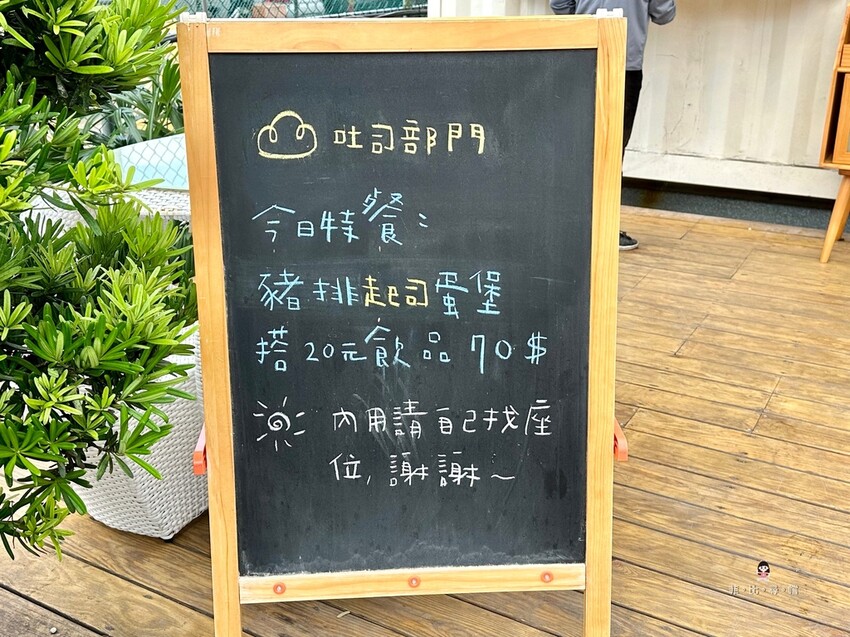 吐司部門
今日特餐：
豬排起司蛋堡
搭20元飲品 70$
內用請自己找座
位，謝謝～